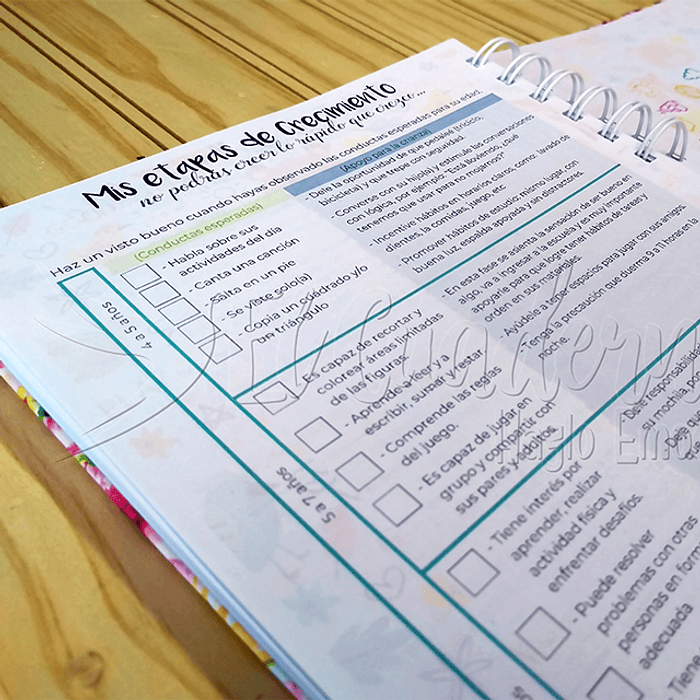 Mis etapas de Crecimiento
no podrás creer lo rápido que crezco...
Haz un visto bueno cuando hayas observado las conductas esperadas para su edad.
(Conductas esperadas)
(Apoyo para la crianza)
4 a 5 años
- Habla sobre sus
actividades del día
- Canta una canción
- Salta en un pie
- Se viste solo(a)
- Copia un cuadrado y/o
un triángulo
- Dele la oportunidad de que pedaleé (triciclo,
bicicleta), y que trepe con seguridad.
- Converse con su hijo(a) y estimule las conversaciones
con lógica, por ejemplo: "Está lloviendo, ¿qué
tenemos que usar para no mojarnos?
- Incentive hábitos en horarios claros, como: lavado de
dientes, la comidas, juego, etc.
- Promover hábitos de estudio: mismo lugar con
buena luz, espalda apoyada y sin distractores.
5 a 7 años
- Es capaz de recortar y
colorear áreas limitadas
de las figuras.
- Aprende a leer y a
escribir, sumar y restar.
- Comprende las reglas
del juego.
- Es capaz de jugar en
grupo y compartir con
sus pares y adultos.
- En esta fase se asienta la sensación de ser bueno en
algo, va a ingresar a la escuela y es muy importante
apoyarle para que logre tener hábitos de tareas y
orden en sus materiales.
- Ayúdele a tener espacios para jugar con sus amigos.
- Tenga la precaución que duerma 9 a 11 horas en
noche.
- Tiene interés por
aprender, realizar
actividad física y
enfrentar desafíos.
- Puede resolver
problemas con otras
personas en
adecuada
- Tiene
Dele responsabilidad
su mochila, por
Deje que
Mi Cuadern
Hazlo Emo